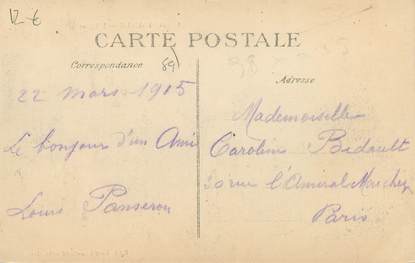 12 €
CARTE POSTALE
Correspondance
89)
Adresse
22 mars 1915
Le bonjour d'un Ami
Louis Panseron
Mademoiselle
Caroline Bidault
20 rue l'Amiral Mouchez
Paris